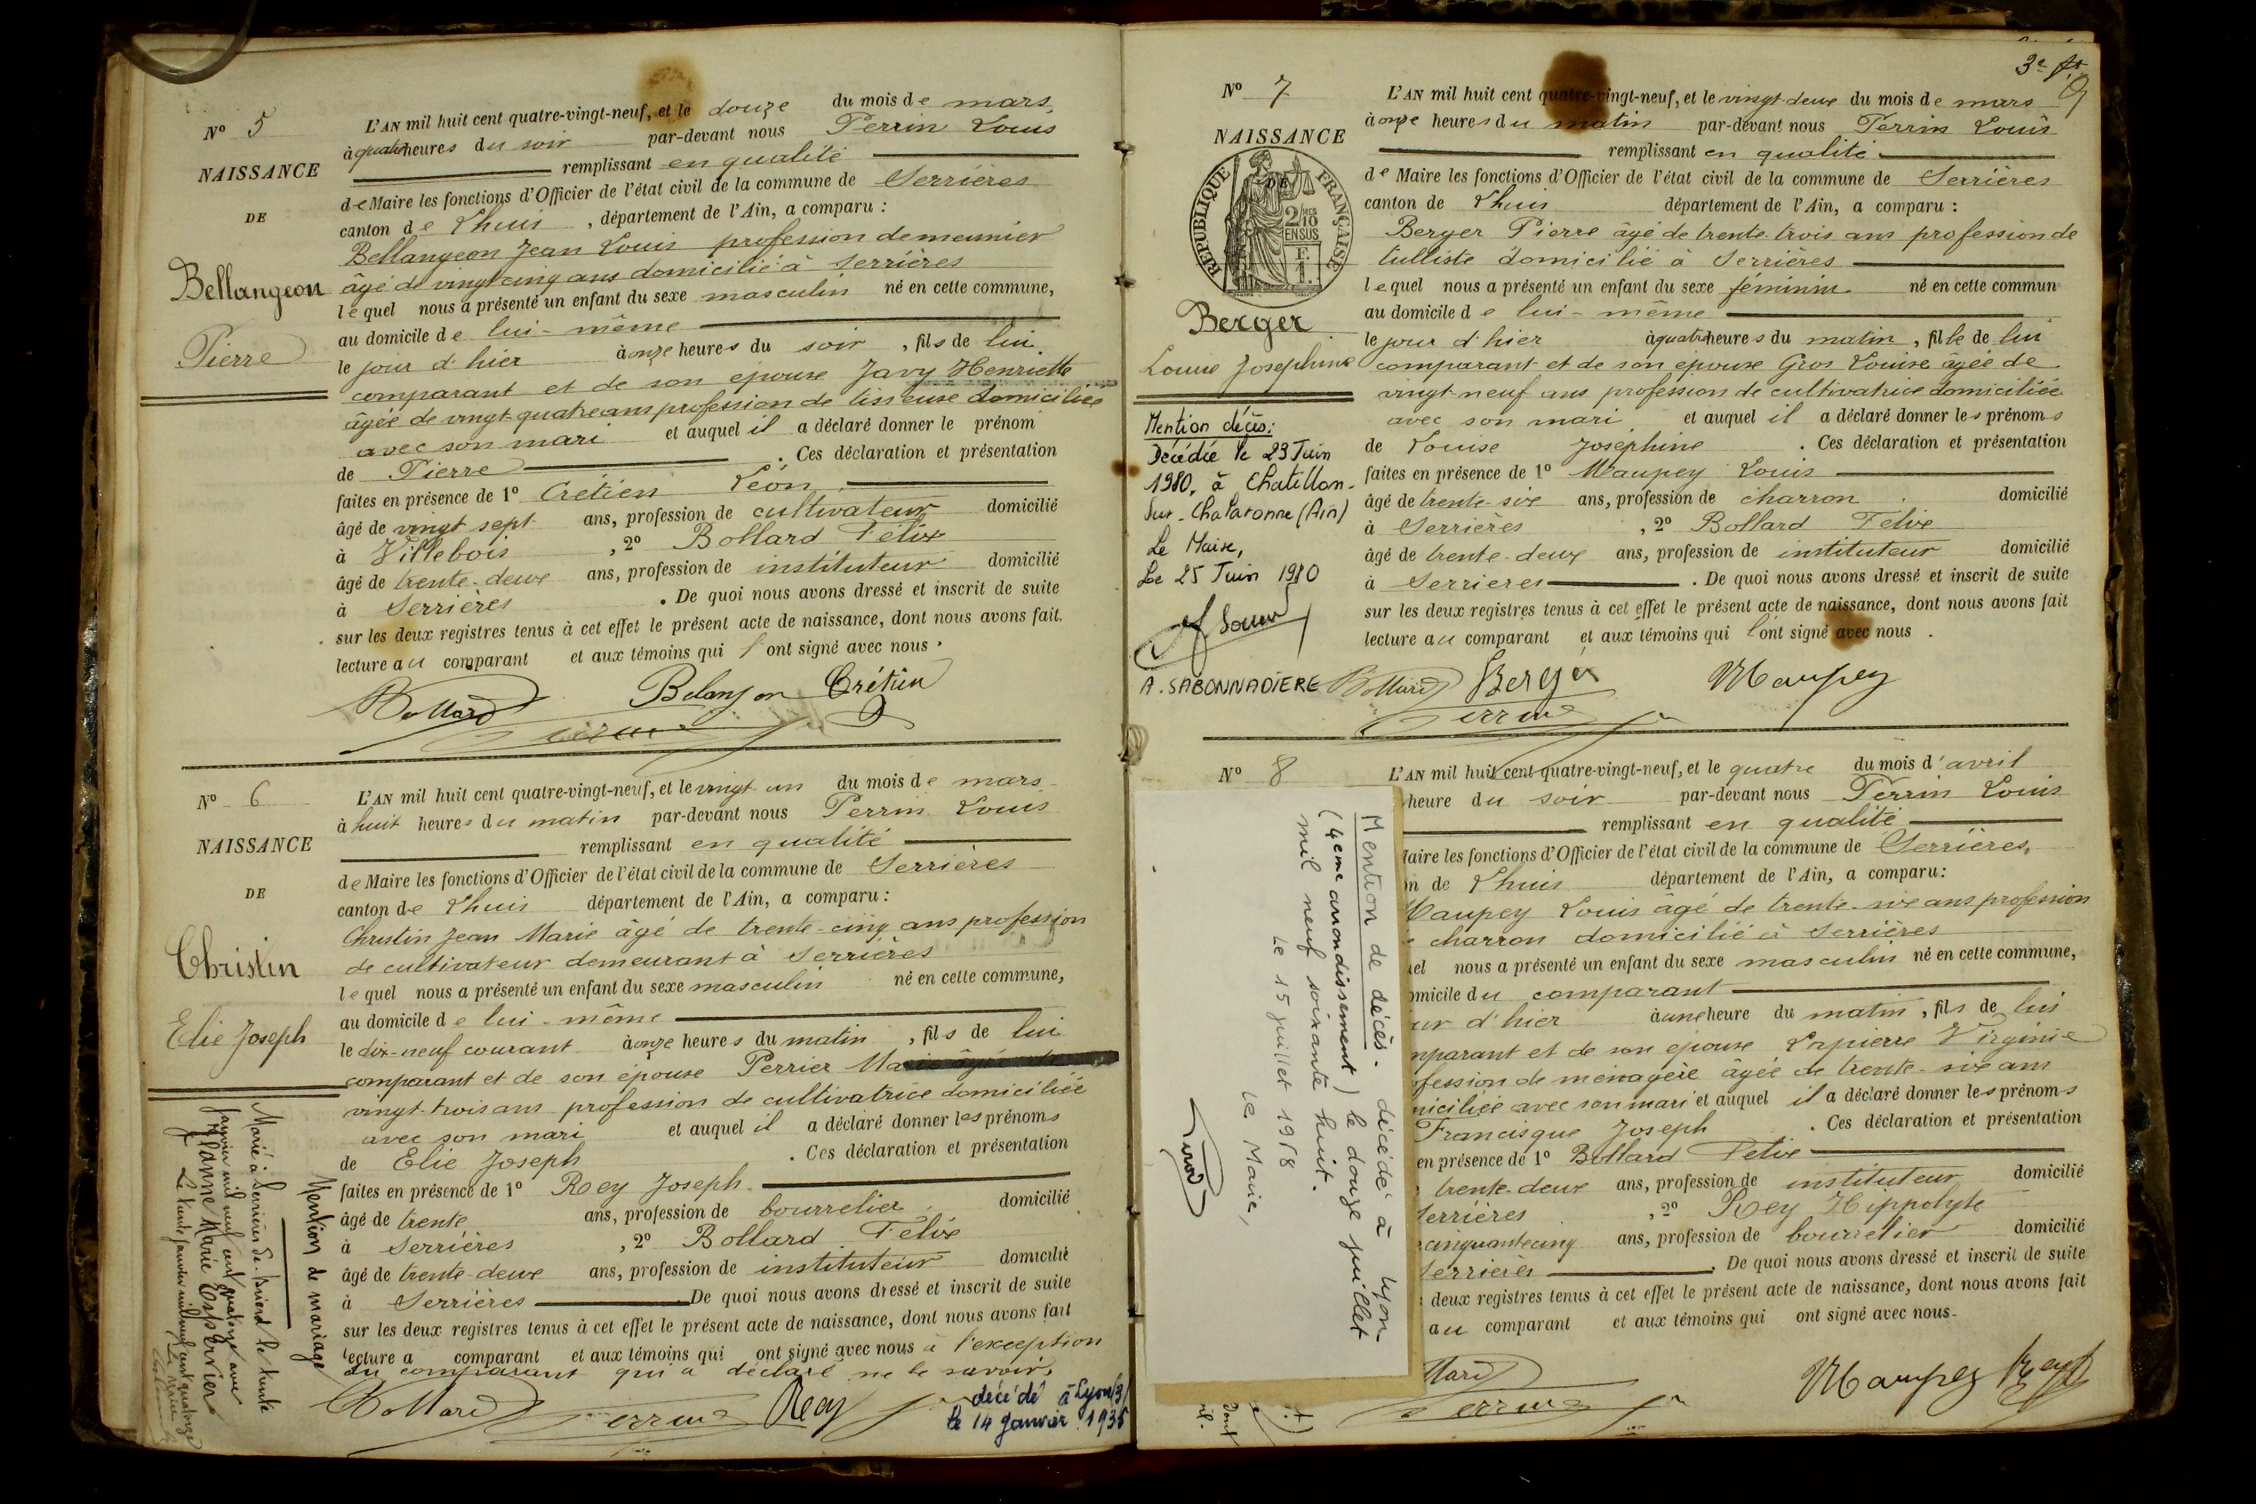 N° 5
NAISSANCE
DE
Bellangeon
Pierre
L'AN mil huit cent quatre-vingt-neuf, et le douze du mois de mars
à quatre heures du soir par-devant nous Perrin Louis
remplissant en qualité
de Maire les fonctions d'Officier de l'état civil de la commune de Serrières
canton de Lhuis, département de l'Ain, a comparu :
Bellangeon Jean Louis profession de meunier
âgé de vingt cinq ans domicilié à Serrières
lequel nous a présenté un enfant du sexe masculin né en cette commune,
au domicile de lui-même
le jour d'hier à onze heures du soir, fils de lui
comparant et de son épouse Javy Henriette
âgée de vingt-quatre ans profession de tisseuse domiciliée
avec son mari et auquel il a déclaré donner le prénom
de Pierre. Ces déclaration et présentation
faites en présence de 1° Crétien Léon
âgé de vingt sept ans, profession de cultivateur domicilié
à Villebois, 2° Bollard Félix
âgé de trente-deux ans, profession de instituteur domicilié
à Serrières. De quoi nous avons dressé et inscrit de suite
sur les deux registres tenus à cet effet le présent acte de naissance, dont nous avons fait
lecture au comparant et aux témoins qui l'ont signé avec nous.
Bollard Belanjon Crétien
Perrin
N° 6
NAISSANCE
DE
Christin
Elie Joseph
L'AN mil huit cent quatre-vingt-neuf, et le vingt-un du mois de mars
à huit heures du matin par-devant nous Perrin Louis
remplissant en qualité
de Maire les fonctions d'Officier de l'état civil de la commune de Serrières
canton de Lhuis département de l'Ain, a comparu :
Christin Jean Marie âgé de trente-cinq ans profession
de cultivateur demeurant à Serrières
lequel nous a présenté un enfant du sexe masculin né en cette commune,
au domicile de lui-même
le dix-neuf courant à onze heures du matin, fils de lui
comparant et de son épouse Perrier
vingt-trois ans profession de cultivatrice domiciliée
avec son mari et auquel il a déclaré donner les prénoms
de Elie Joseph. Ces déclaration et présentation
faites en présence de 1° Rey Joseph
âgé de trente ans, profession de bourrelier domicilié
à Serrières, 2° Bollard Félix
âgé de trente-deux ans, profession de instituteur domicilié
à Serrières De quoi nous avons dressé et inscrit de suite
sur les deux registres tenus à cet effet le présent acte de naissance, dont nous avons fait
lecture a comparant et aux témoins qui ont signé avec nous à l'exception
du comparant qui a déclaré ne le savoir.
Bollard Perrin Rey
décédé à Lyon (3)
le 14 Janvier 1935
Mention de mariage
Marié à Serrières de Briord le trente
janvier mil neuf cent quatorze avec
Jeanne Marie Épervier
Le trente janvier mil neuf cent quatorze
Le Maire
3e ft
N° 7
NAISSANCE
DE
RÉPUBLIQUE FRANÇAISE
2/10
EN SUS
Berger
Louise Josephine
Mention décès:
Décédée le 23 Juin
1980, à Chatillon-
sur-Chalaronne (Ain)
Le Maire,
Le 25 Juin 1980
A. SABONNADIERE
L'AN mil huit cent quatre-vingt-neuf, et le vingt-deux du mois de mars
à onze heures du matin par-devant nous Perrin Louis
remplissant en qualité
de Maire les fonctions d'Officier de l'état civil de la commune de Serrières
canton de Lhuis département de l'Ain, a comparu :
Berger Pierre âgé de trente-trois ans profession de
tulliste domicilié à Serrières
lequel nous a présenté un enfant du sexe féminin né en cette commun
au domicile de lui-même
le jour d'hier à quatre heures du matin, fille de lui
comparant et de son épouse Gros Louise âgée de
vingt-neuf ans profession de cultivatrice domiciliée
avec son mari et auquel il a déclaré donner les prénoms
de Louise Joséphine. Ces déclaration et présentation
faites en présence de 1° Maupey Louis
âgé de trente-six ans, profession de charron domicilié
à Serrières, 2° Bollard Félix
âgé de trente-deux ans, profession de instituteur domicilié
à Serrières. De quoi nous avons dressé et inscrit de suite
sur les deux registres tenus à cet effet le présent acte de naissance, dont nous avons fait
lecture au comparant et aux témoins qui l'ont signé avec nous.
Bollard Berger Maupey
Perrin
N° 8
L'AN mil huit cent quatre-vingt-neuf, et le quatre du mois d'avril
heure du soir par-devant nous Perrin Louis
remplissant en qualité
Maire les fonctions d'Officier de l'état civil de la commune de Serrières,
on de Lhuis département de l'Ain, a comparu:
Maupey Louis âgé de trente-six ans profession
charron domicilié à Serrières
uel nous a présenté un enfant du sexe masculin né en cette commune,
omicile du comparant
ur d'hier à une heure du matin, fils de lui
mparant et de son épouse Lapierre Virginie
ofession de ménagère âgée de trente-six ans
miciliée avec son mari et auquel il a déclaré donner les prénoms
Francisque Joseph. Ces déclaration et présentation
en présence de 1° Bollard Félix
trente-deux ans, profession de instituteur domicilié
Serrières, 2° Rey Hippolyte
cinquante cinq ans, profession de bourrelier domicilié
Serrières. De quoi nous avons dressé et inscrit de suite
deux registres tenus à cet effet le présent acte de naissance, dont nous avons fait
au comparant et aux témoins qui ont signé avec nous.
llard Maupey Rey
Perrin
Mention de décès. décédé à Lyon-
(4eme arrondissement) le douze juillet
mil neuf soixante huit.
Le 15 juillet 1968
Le Maire,
dont